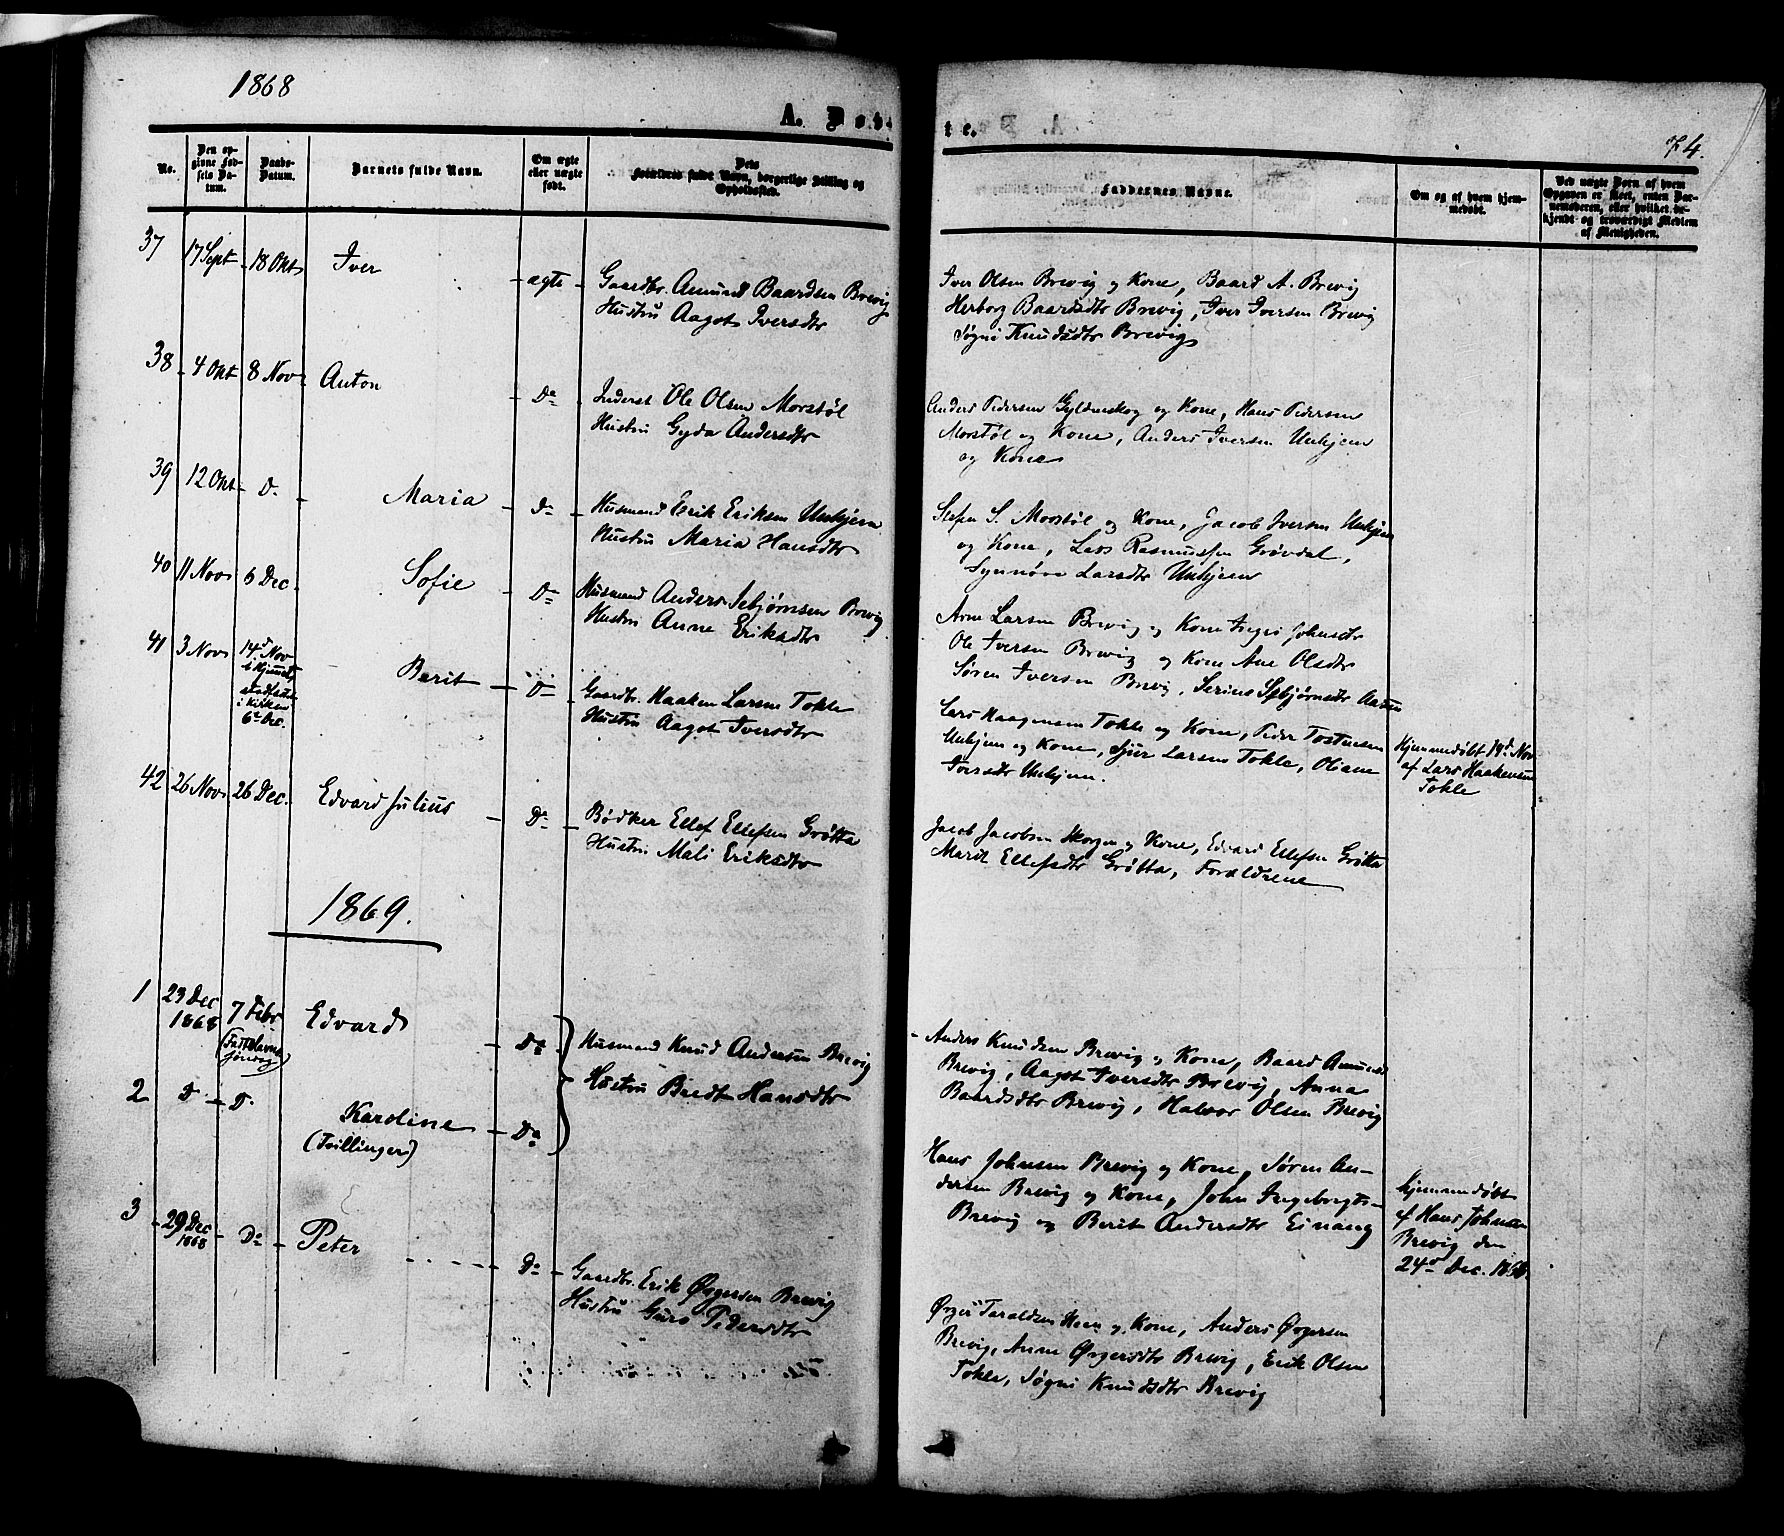 1868
A. Døb-
te.
74.
No.
Den op-
givne Fød-
sels Da-
tum.
Daabs-
Datum.
Barnets fulde Navn.
Om ægte
eller uægte
født.
Dets
Forældres fulde Navn, borgerlige Stilling og
Opholdssted.
Faddernes Navne.
Om og af hvem hjem-
medøbt.
Ved uægte Børn af hvem
Opgaven er skeet, enten Bar-
nemoderen, eller hvilket be-
kjendt og troværdigt Medlem
af Menigheden.
37 17 Sept 18 Okt Iver ægte
Gaardbr. Amund Baardsen Brevig
Hustru Aagot Iversdtr
Iver Olsen Brevig og Kone, Baard A. Brevig
Herborg Baardsdtr Brevig, Iver Iversen Brevig
Søgni Knudsdtr Brevig
38 4 Okt 8 Nov Anton Do
Inderst Ole Olsen Morstøl
Hustru Gyda Andersdtr
Anders Pedersen Gyldenskog og Kone, Hans Pedersen
Morstøl og Kone, Anders Iversen Unhjem
og Kone
39 12 Okt D. Maria Do
Husmand Erik Eriksen Unhjem
Hustru Maria Hansdtr
Stefen S. Morstøl og Kone, Jacob Iversen Unhjem
og Kone, Lars Rasmussen Grøvdal,
Synnøve Larsdtr Unhjem
40 11 Nov 6 Dec. Sofie Do
Husmand Anders Sebjørnsen Brevig
Hustru Anne Eriksdtr
Arne Larsen Brevig og Kone Johnsdtr
Ole Iversen Brevig og Kone Ane Olsdtr
Søren Iversen Brevig, Serine Sebjørnsdtr
41 3 Nov 14d Nov
i Hjemmet,
stadfæstet
i Kirken
6te Dec.
Berit Do
Gaardbr. Haaken Larsen Tokle
Hustru Aagot Iversdtr
Lars Haagensen Tokle og Kone, Peder Tostensen
Unhjem og Kone, Sjur Larsen Tokle, Oliane
Iversdtr Unhjem.
Hjemmedøbt 14d Nov
af Lars Haakensen
Tokle
42 26 Nov 26 Dec. Edvard Julius Do
Bødker Ellef Ellefsen Grøtta
Hustru Mali Eriksdtr
Jacob Jacobsen Skorgen og Kone, Edvard Ellefsen Grøtta
Marit Ellefsdtr Grøtta, Forældrene
1869.
1 23 Dec
1868
7 Febr
(Fastelavns
søndag)
Edvard Do
Husmand Knud Andersen Brevig
Hustru Beret Hansdtr
Anders Knudsen Brevig og Kone, Baard Amunds
Brevig, Aagot Iversdtr Brevig, Anna
Baardsdtr Brevig, Halvor Olsen Brevig
2 D D. Karoline Do
(Tvillinger)
Hans Johnsen Brevig og Kone, Søren An-
dersen Brevig og Kone, John Ingeborgts-
Brevig og Berit Andersdtr Einang
hjemmedøbt
af Hans Johnsen
Brevig den
24d Dec. 1868.
3 29 Dec
1868
Do Peter Do
Gaardbr. Erik Øvgersen Brevig
Hustru Guro Pedersdtr
Taraldsen Heen og Kone, Anders Øvgersen
Brevig, Anne Øvgersdtr Brevig, Erik Olsen
Tokle, Søgni Knudsdtr Brevig